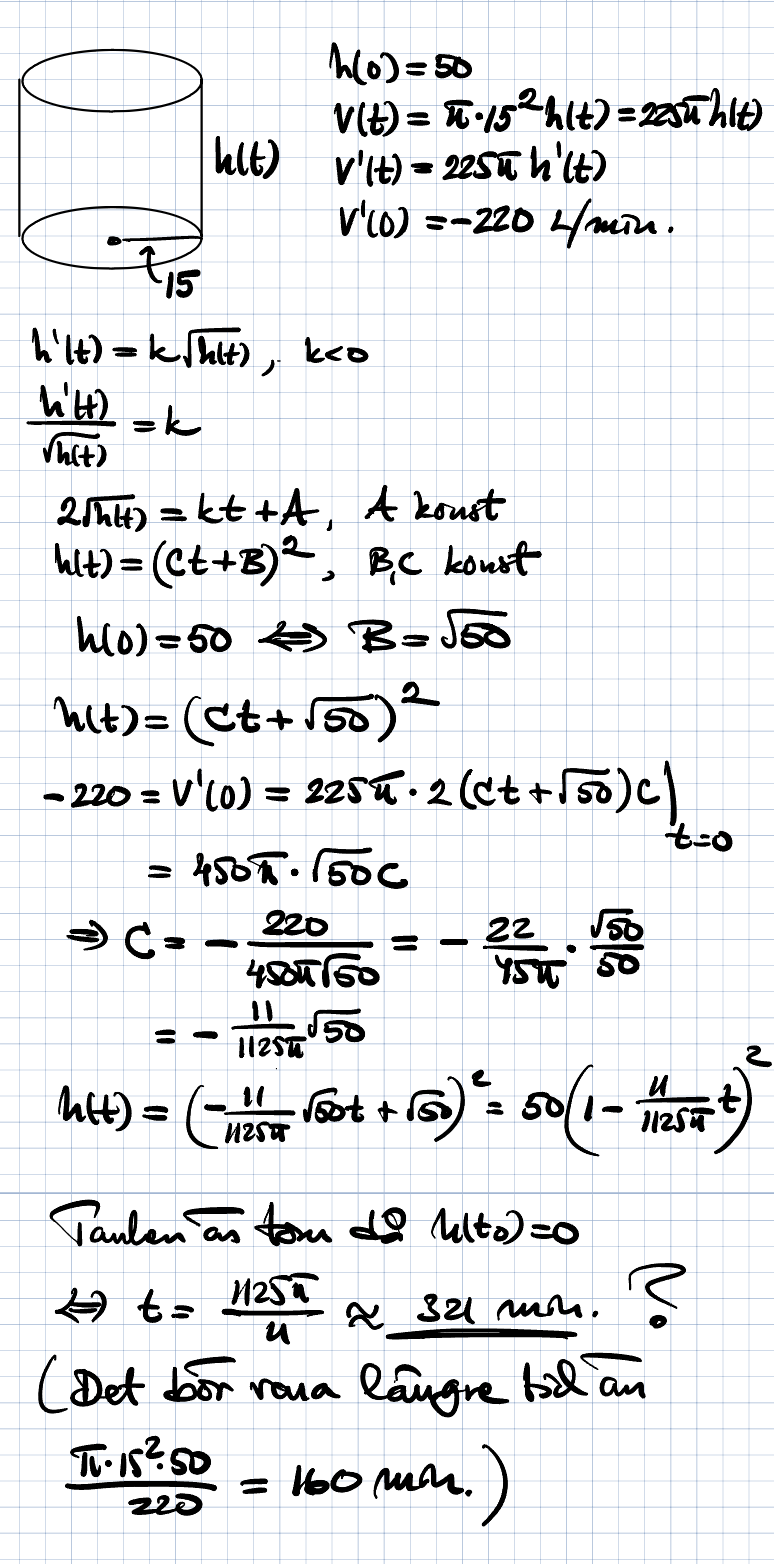 h(0) = 50
V(t) = π·15²h(t) = 225π h(t)
V'(t) = 225π h'(t)
V'(0) = -220 L/min.
h(t)
15
h'(t) = k√h(t), k<0
h'(t)/√h(t) = k
2√h(t) = kt + A, A konst
h(t) = (Ct+B)², B,C konst
h(0) = 50 ⟺ B = √50
h(t) = (Ct + √50)²
-220 = V'(0) = 225π · 2(Ct + √50)C|t=0
= 450π · √50 C
⇒ C = - 220/(450π√50) = - 22/(45π) · √50/50
= - 11/(1125π) √50
h(t) = (-11/(1125π) √50t + √50)² = 50(1 - 11/(1125π) t)²
Tanken är tom då h(t₀) = 0
⟺ t = 1125π/11 ≈ 321 min. ?
(Det bör vara längre tid än
π·15²·50/220 = 160 min.)